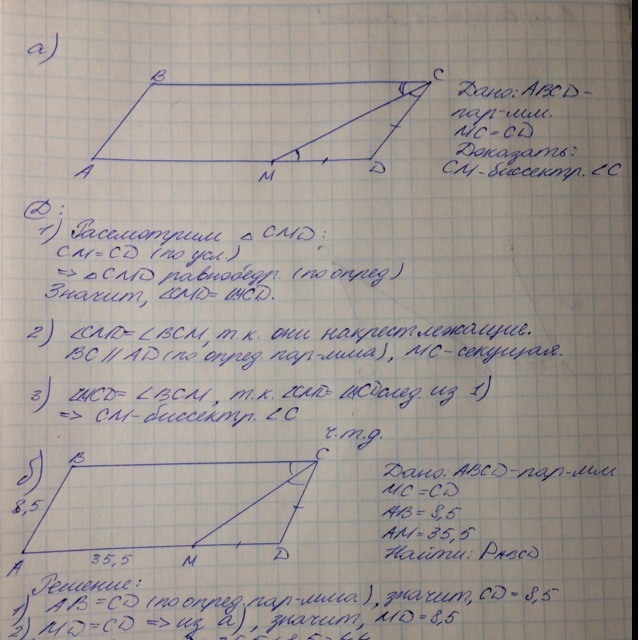 а)
B
C
A
M
D
Дано: ABCD-
пар-мм.
MC=CD
Доказать:
CM-биссектр. ∠C
Д:
1) Рассмотрим △CMD:
CM=CD (по усл)
=> △CMD равнобедр. (по опред)
Значит, ∠CMD=∠MCD.
2) ∠CMD=∠BCM, т.к. они накрестлежащие.
BC∥AD (по опред. пар-мма), MC-секущая.
3) ∠MCD=∠BCM, т.к. ∠CMD=∠MCD след. из 1)
=> CM-биссектр. ∠C
ч.т.д.
б)
B
C
8,5
A
35,5
M
D
Дано: ABCD-пар-мм
MC=CD
AB=8,5
AM=35,5
Найти: PABCD
Решение:
1) AB=CD (по опред. пар-мма), значит, CD=8,5
2) MD=CD => из а), значит, MD=8,5